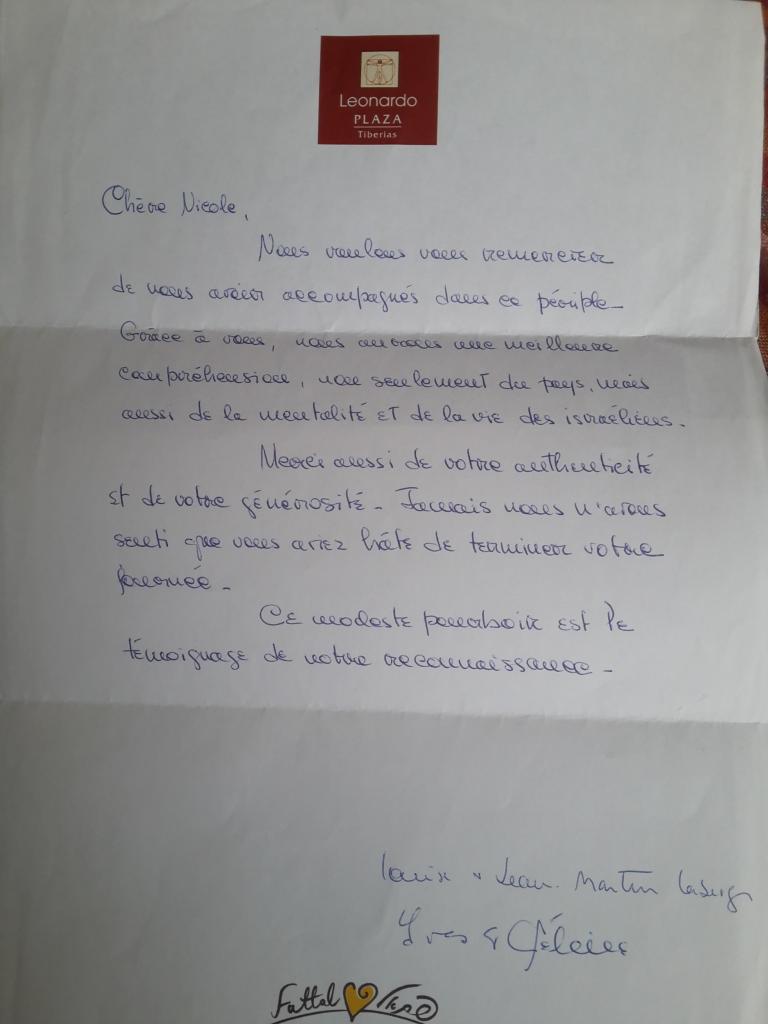 Leonardo
PLAZA
Tiberias
Chère Nicole,
Nous voulons vous remercier
de nous avoir accompagnés dans ce périple_
Grâce à vous, nous avons une meilleure
compréhension, non seulement du pays, mais
aussi de la mentalité et de la vie des israéliens.
Merci aussi de votre authenticité
et de votre générosité_ Jamais nous n'avons
senti que vous aviez hâte de terminer votre
journée_
Ce modeste pourboire est le
témoignage de notre reconnaissance_
Jean-Martin
Yves &
Fattal